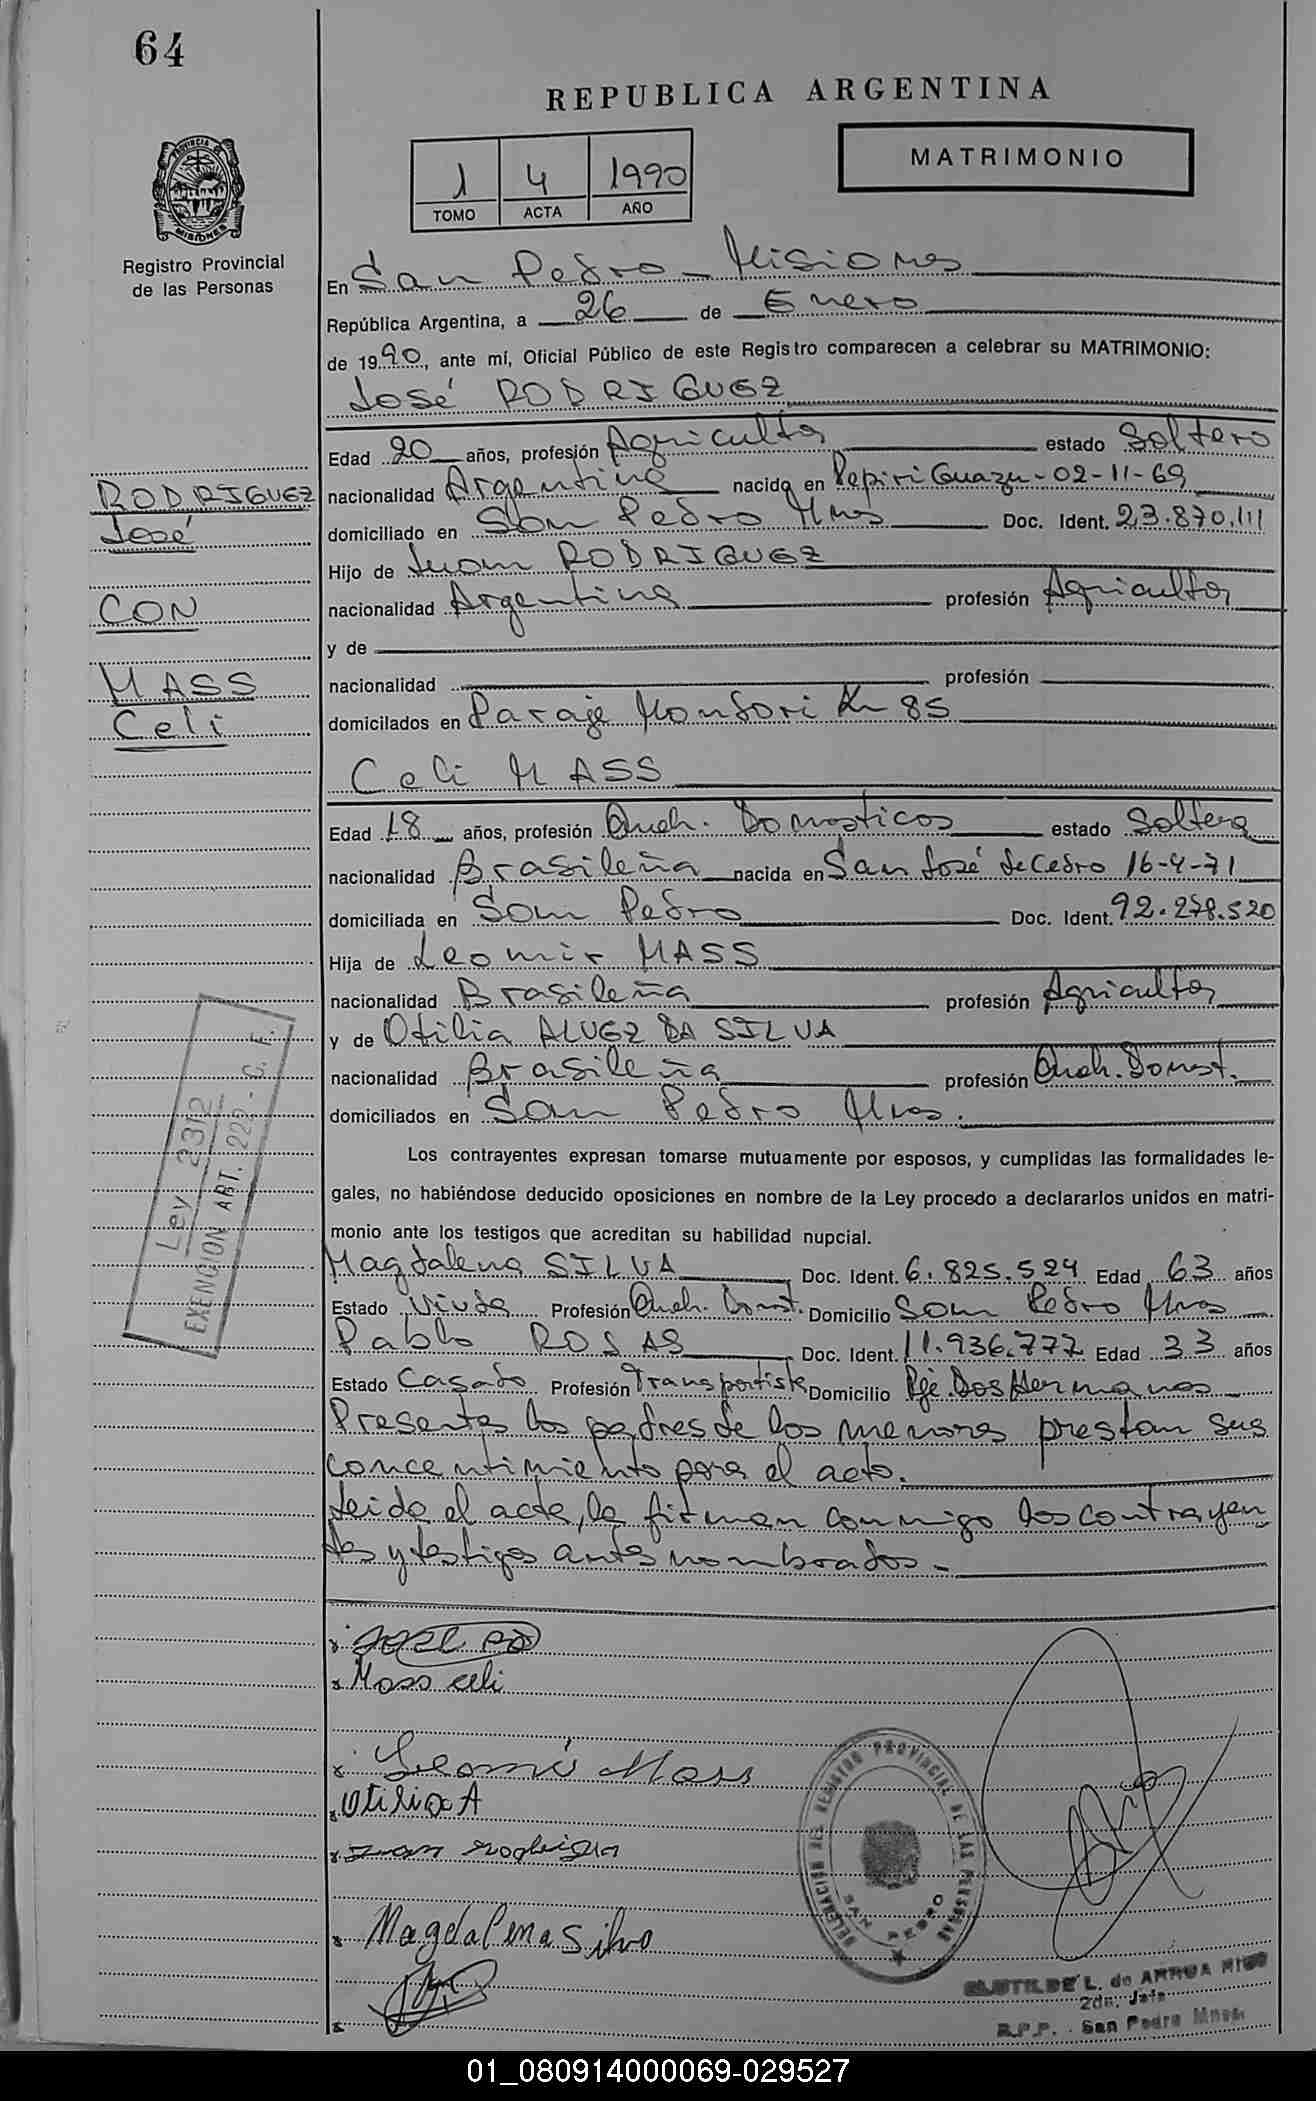 64
REPUBLICA ARGENTINA
MATRIMONIO
1 4 1990
TOMO ACTA AÑO
PROVINCIA DE
MISIONES
Registro Provincial
de las Personas
En San Pedro - Misiones
República Argentina, a 26 de Enero
de 1990, ante mí, Oficial Público de este Registro comparecen a celebrar su MATRIMONIO:
José RODRIGUEZ
Edad 20 años, profesión Agricultor estado Soltero
RODRIGUEZ
José
CON
MASS
Celi
nacionalidad Argentina nacido en Pepiri Guazu - 02-11-69
domiciliado en San Pedro Mnes Doc. Ident. 23.870.111
Hijo de Juan RODRIGUEZ
nacionalidad Argentina profesión Agricultor
y de
nacionalidad profesión
domicilados en Paraje Monfori Km 85
Celi MASS
Edad 18 años, profesión Queh. Domesticos estado Soltera
nacionalidad Brasileña nacida en San José de Cedro 16-4-71
domiciliada en San Pedro Doc. Ident. 92.278.520
Hija de Leomir MASS
nacionalidad Brasileña profesión Agricultor
y de Otilia ALVEZ DA SILVA
nacionalidad Brasileña profesión Queh. Domest.
domiciliados en San Pedro Mnes.
Ley 2312
EXENCION ART. 222 - C. F.
Los contrayentes expresan tomarse mutuamente por esposos, y cumplidas las formalidades le-
gales, no habiéndose deducido oposiciones en nombre de la Ley procedo a declararlos unidos en matri-
monio ante los testigos que acreditan su habilidad nupcial.
Magdalena SILVA Doc. Ident. 6.825.524 Edad 63 años
Estado Viuda Profesión Queh. Domst. Domicilio San Pedro Mnes
Pablo ROSAS Doc. Ident. 11.936.777 Edad 33 años
Estado Casado Profesión Transportista Domicilio Pje. Dos Hermanas
Presentes los padres de los menores prestan sus
concentimiento para el acto.
Leida el acta, la firman conmigo los contrayen
tes y testigos antes nombrados.-
x José Ro
x Mass celi
x Leomir Mass
x Otilia A
x Juan Rodriguez
x Magdalena Silva
x
DELEGACION DEL REGISTRO PROVINCIAL DE LAS PERSONAS
SAN PEDRO
CLOTILDE L. de ARRUA
2da. Jefa
R.P.P. - San Pedro Mnes.
01_080914000069-029527